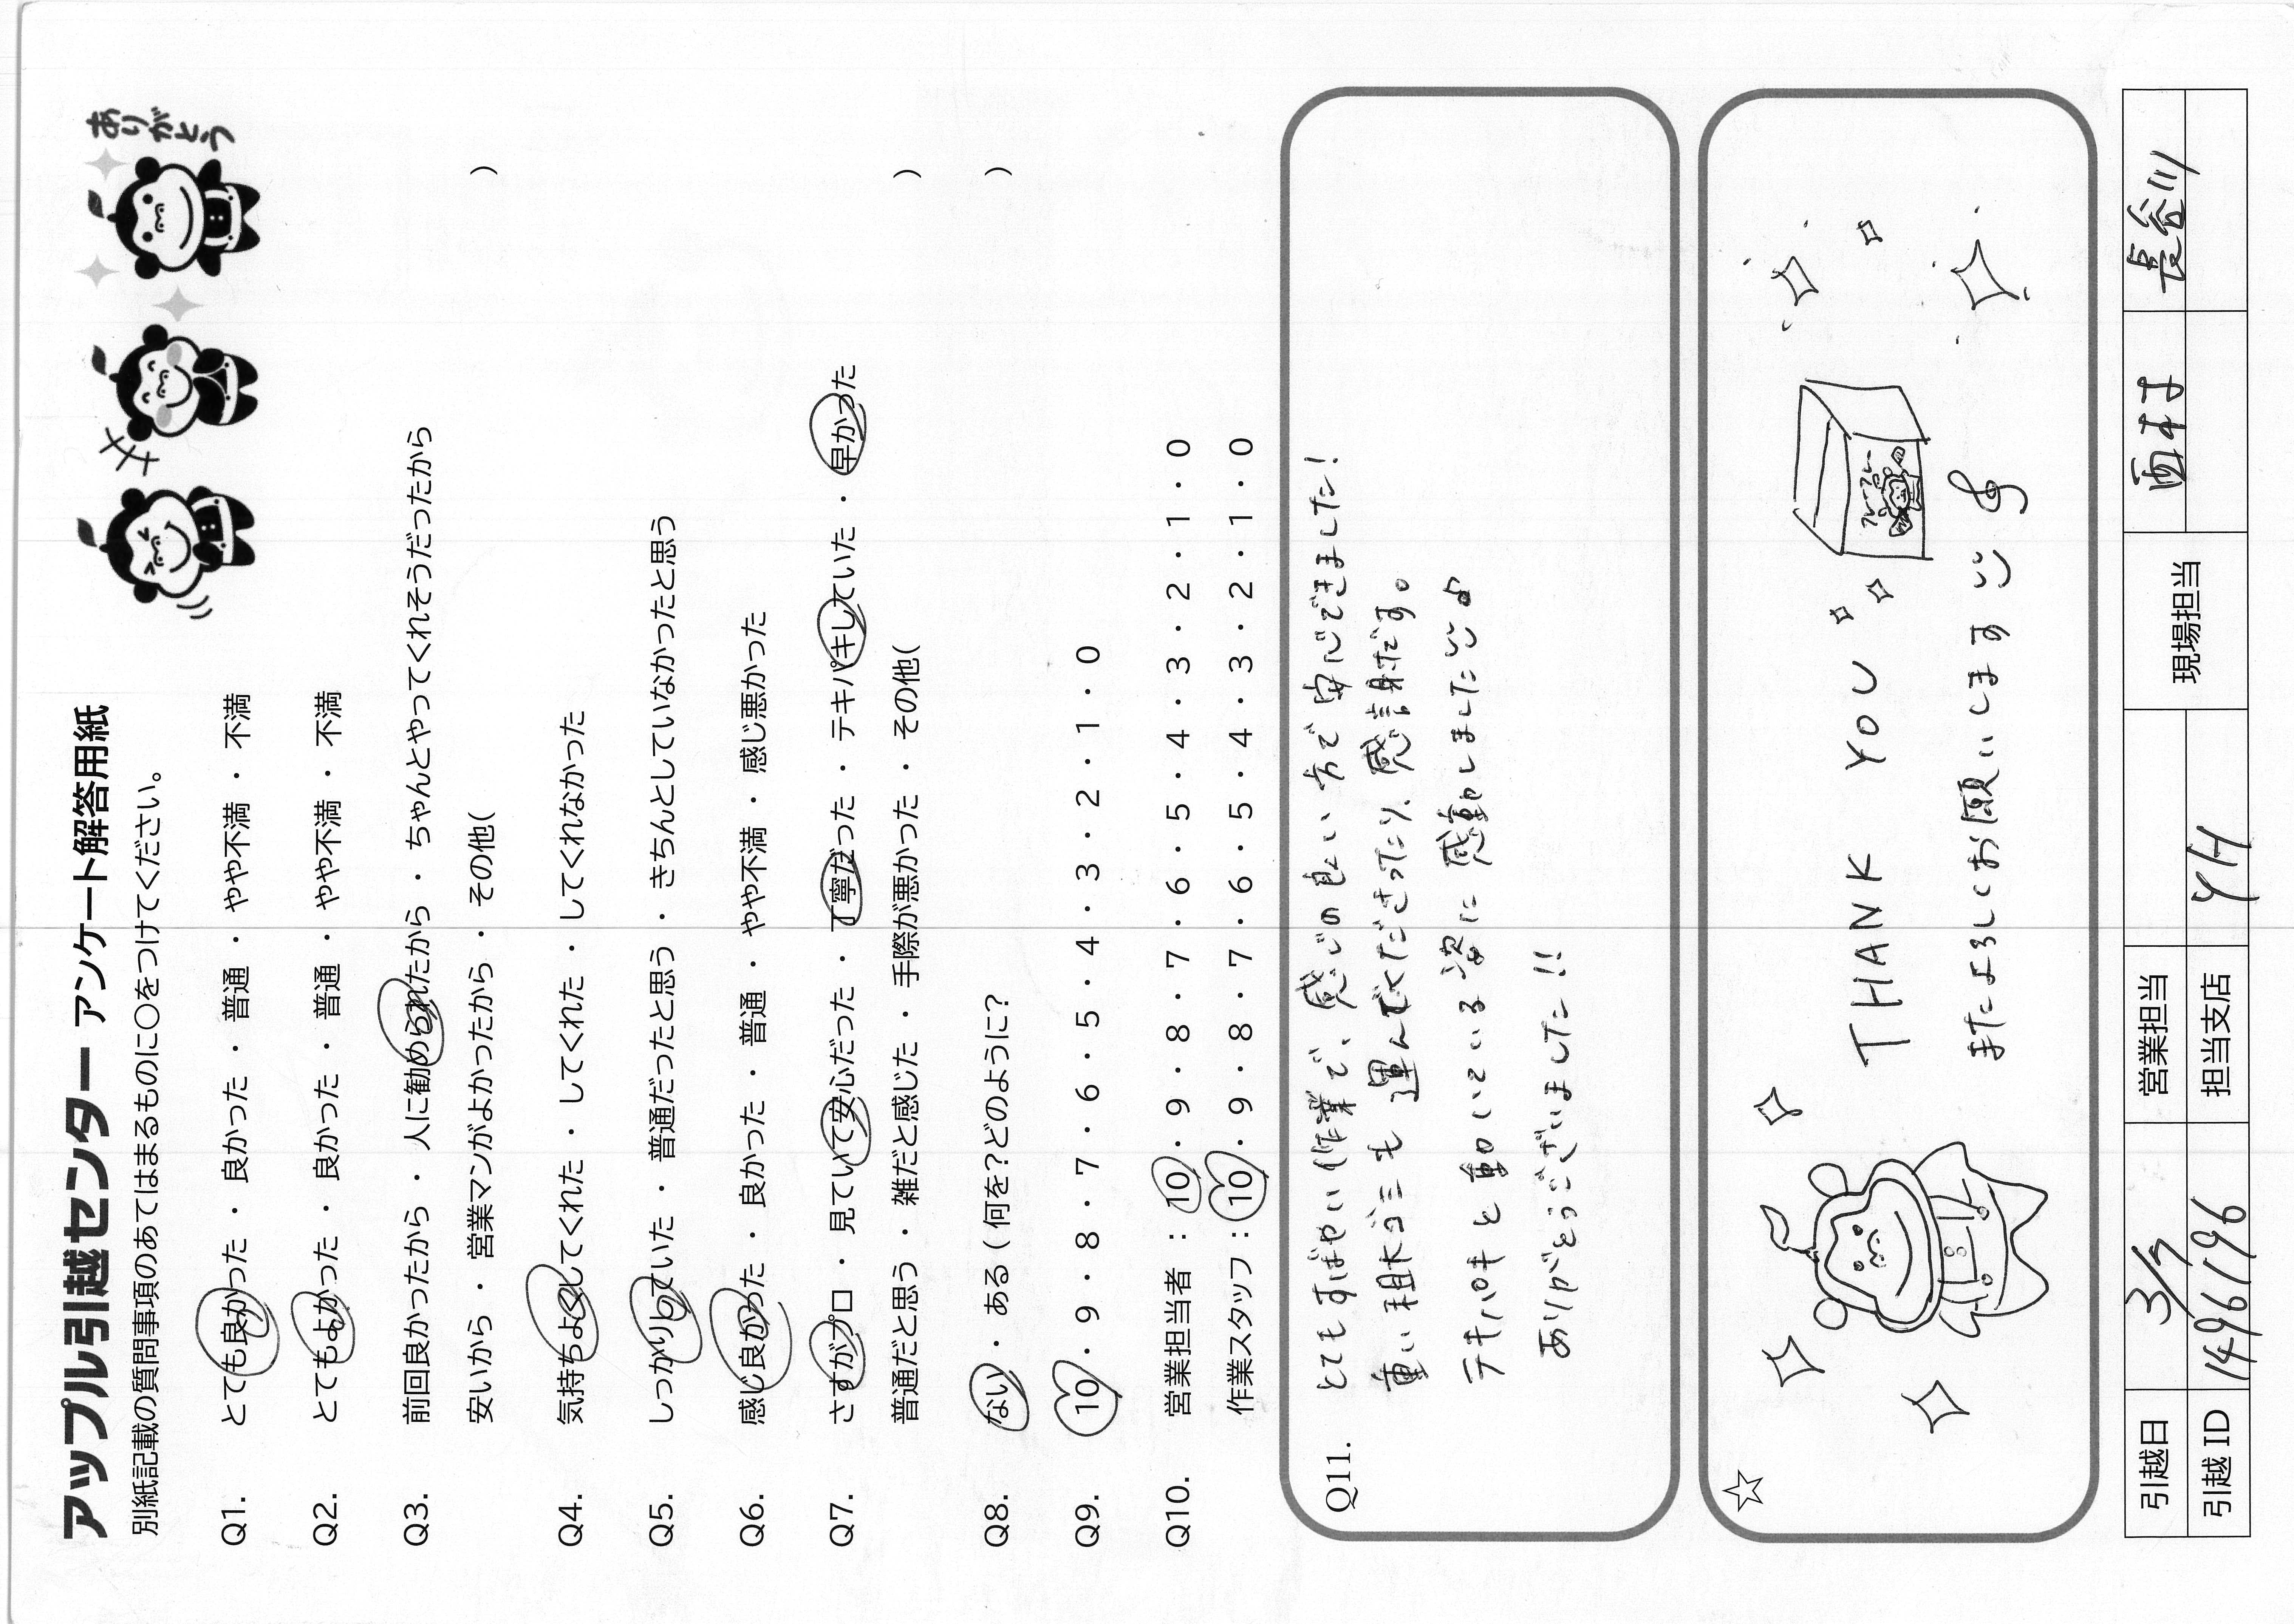 アップル引越センター アンケート解答用紙
ありがとう
別紙記載の質問事項のあてはまるものに〇をつけてください。
Q1. とても良かった ・ 良かった ・ 普通 ・ やや不満 ・ 不満
Q2. とてもよかった ・ 良かった ・ 普通 ・ やや不満 ・ 不満
Q3. 前回良かったから ・ 人に勧められたから ・ ちゃんとやってくれそうだったから
安いから ・ 営業マンがよかったから ・ その他( )
Q4. 気持ちよくしてくれた ・ してくれた ・ してくれなかった
Q5. しっかりしていた ・ 普通だったと思う ・ きちんとしていなかったと思う
Q6. 感じ良かった ・ 良かった ・ 普通 ・ やや不満 ・ 感じ悪かった
Q7. さすがプロ ・ 見ていて安心だった ・ 丁寧だった ・ テキパキしていた ・ 早かった
普通だと思う ・ 雑だと感じた ・ 手際が悪かった ・ その他( )
Q8. ない ・ ある ( 何を？どのように？ )
Q9. 10 ・ 9 ・ 8 ・ 7 ・ 6 ・ 5 ・ 4 ・ 3 ・ 2 ・ 1 ・ 0
Q10. 営業担当者 : 10 ・ 9 ・ 8 ・ 7 ・ 6 ・ 5 ・ 4 ・ 3 ・ 2 ・ 1 ・ 0
作業スタッフ : 10 ・ 9 ・ 8 ・ 7 ・ 6 ・ 5 ・ 4 ・ 3 ・ 2 ・ 1 ・ 0
Q11.
とてもすばやい作業で、感じの良い方で安心できました！
重い粗大ゴミも運んでくださったり、感謝です。
テキパキと動いている姿に感動しました♪
ありがとうございました!!
☆
THANK YOU
またよろしくお願いします
引越日 3/7 営業担当 現場担当 西村 長谷川
引越 ID 1496196 担当支店 YH